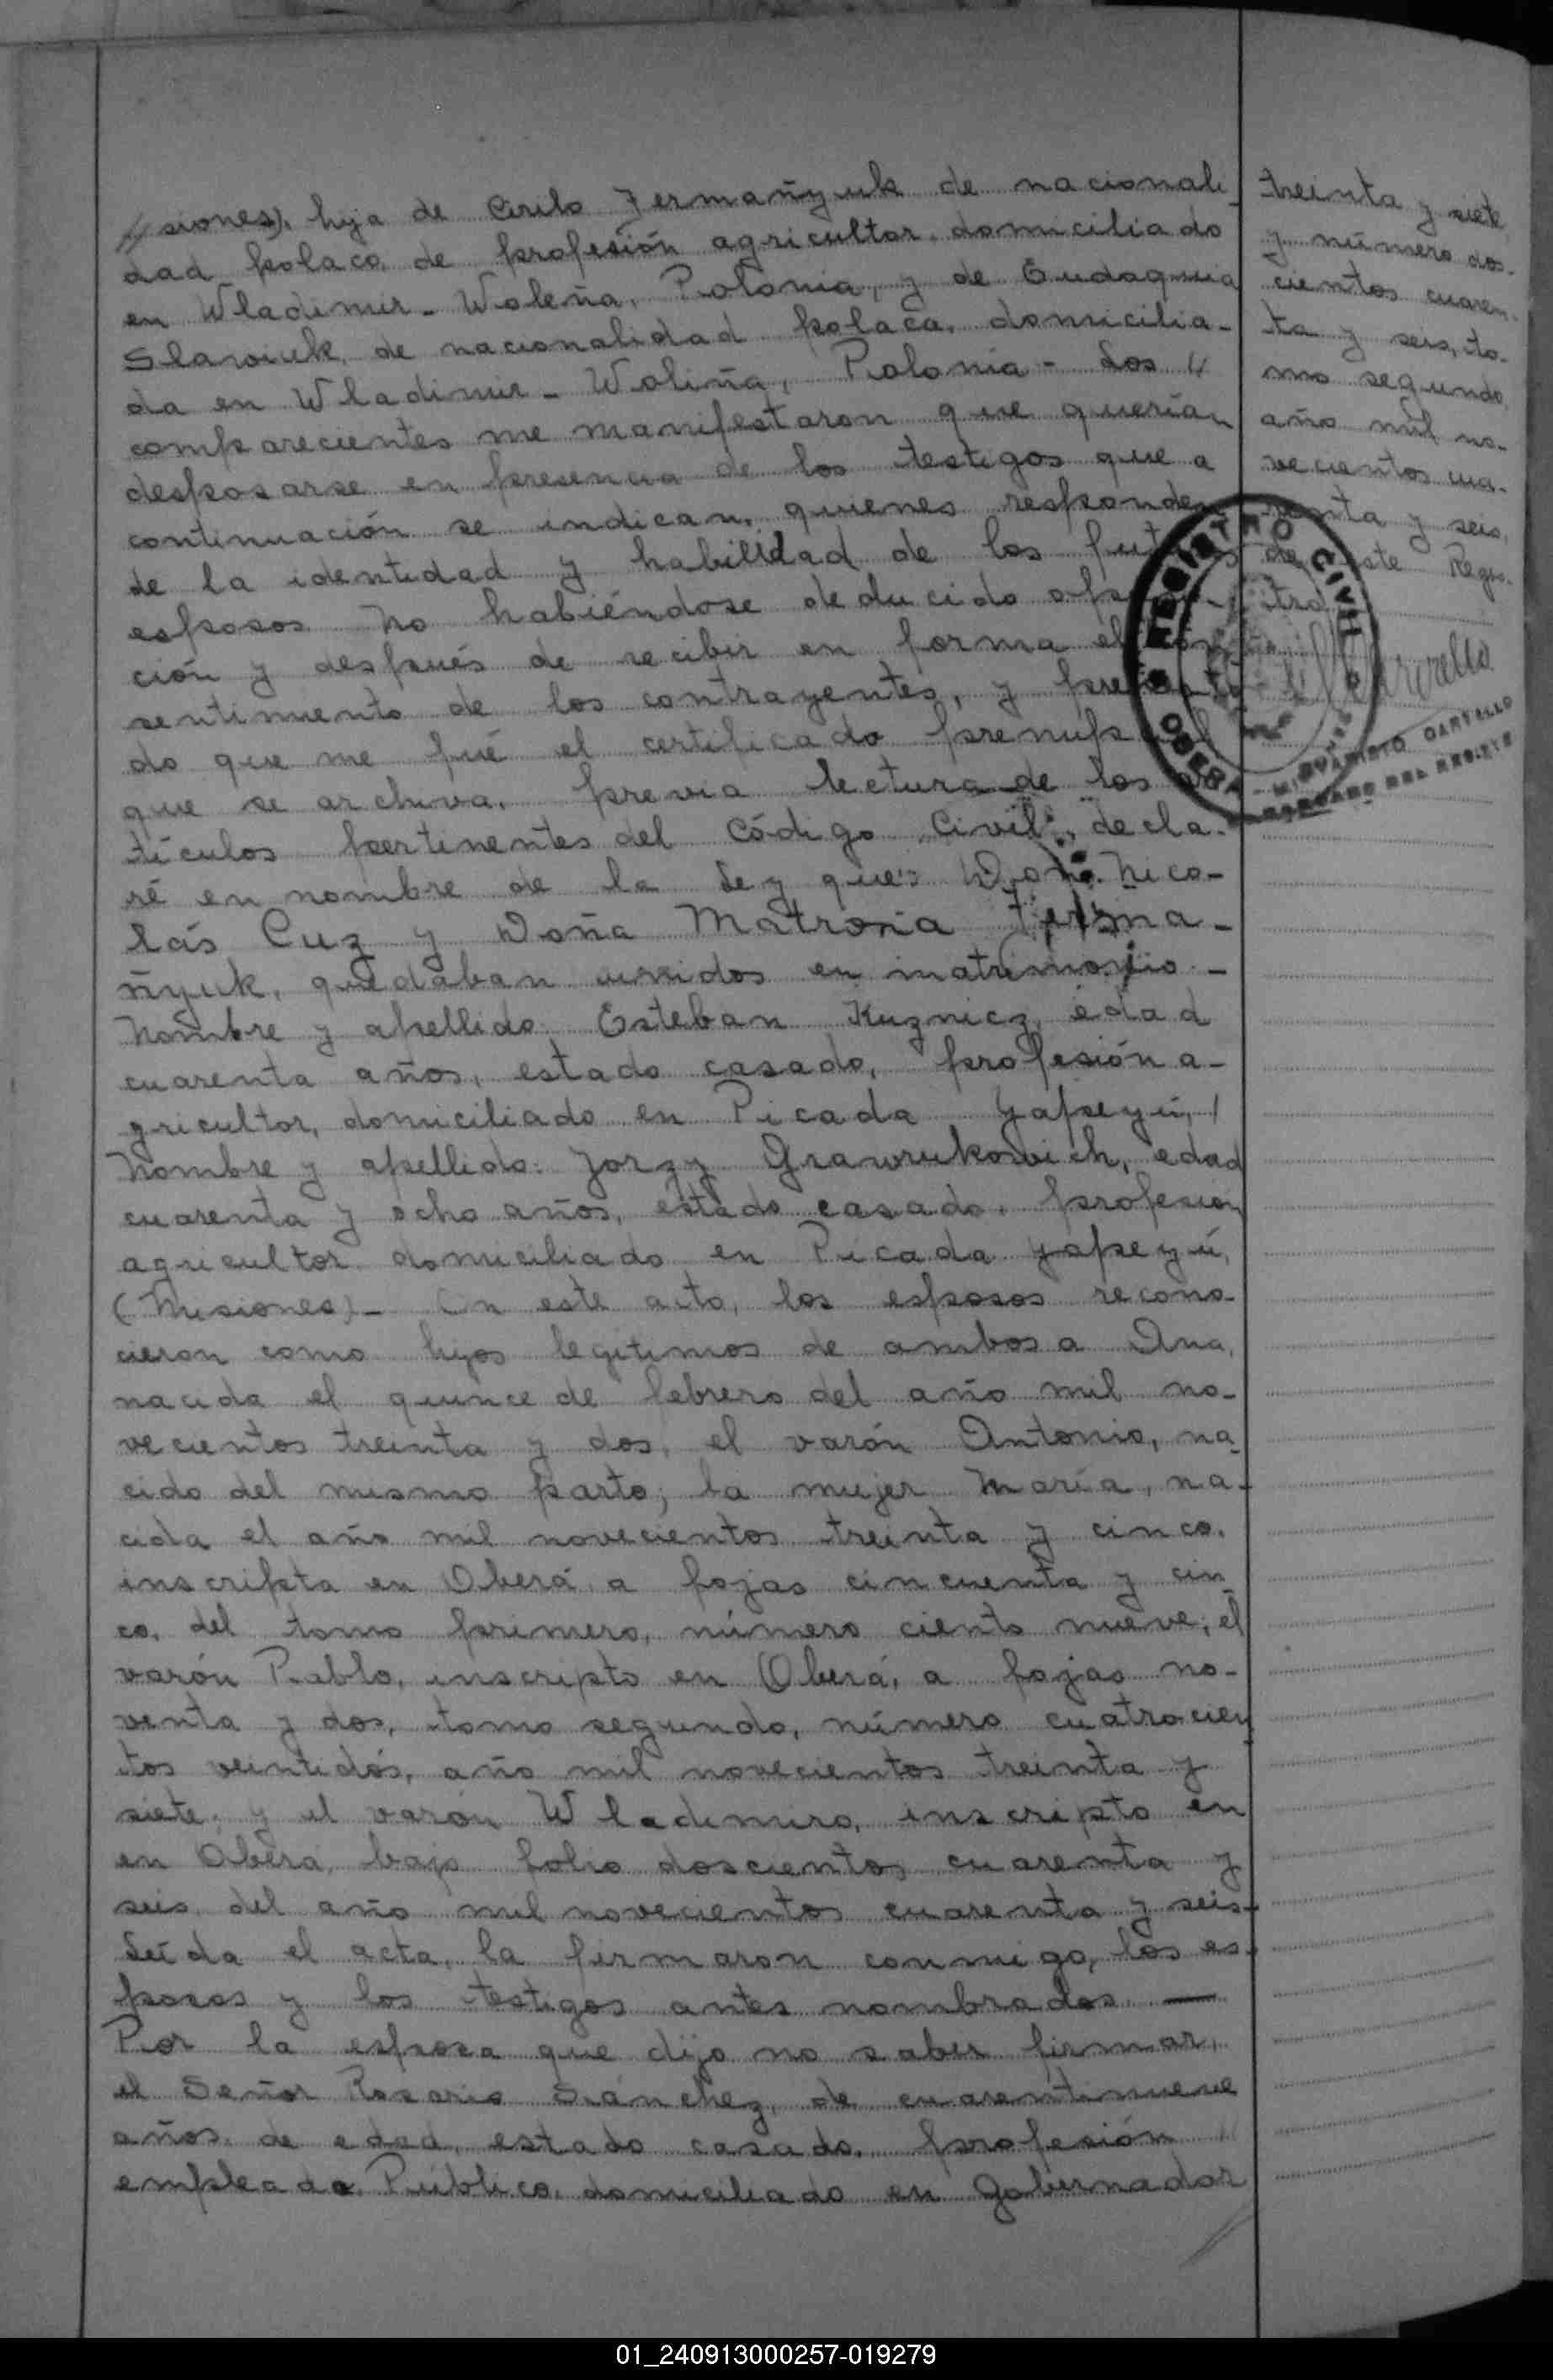 //siones), hija de Cirilo Jermañyuk de nacionali-
dad polaco, de profesión agricultor, domiciliado
en Wladimir - Woleña, Polonia, y de Eudoquia
Slawiuk, de nacionalidad polaca, domicilia-
da en Wladimir - Woliña, Polonia - Los //
comparecientes me manifestaron que querían
desposarse en presencia de los testigos que a
continuación se indican, quienes responden
de la identidad y habilidad de los futuros
esposos. No habiéndose deducido oposi-
ción y después de recibir en forma el con-
sentimiento de los contrayentes, y presenta-
do que me fué el certificado prenupcial
que se archiva, previa lectura de los ar-
tículos pertinentes del Código Civil, decla-
ré en nombre de la Ley que: Don Nico-
lás Cuz y Doña Matrona Jerma-
ñyuk, quedaban unidos en matrimonio -
Nombre y apellido: Esteban Kuznicz, edad
cuarenta años, estado casado, profesión a-
gricultor, domiciliado en Picada Yapeyú, /
Nombre y apellido: Jorzy Grawrukowich, edad
cuarenta y ocho años, estado casado, profesión
agricultor domiciliado en Picada Yapeyú,
(Misiones) - En este acto, los esposos recono-
cieron como hijos legítimos de ambos a Ana,
nacida el quince de febrero del año mil no-
vecientos treinta y dos, el varón Antonio, na-
cido del mismo parto; la mujer María, na-
cida el año mil novecientos treinta y cinco,
inscripta en Oberá, a fojas cincuenta y cin-
co, del tomo primero, número ciento nueve; el
varón Pablo, inscripto en Oberá, a fojas no-
venta y dos, tomo segundo, número cuatrocien-
tos veintidós, año mil novecientos treinta y
siete; y el varón Wladimiro, inscripto en
en Oberá, bajo folio doscientos cuarenta y
seis del año mil novecientos cuarenta y seis-
Leída el acta, la firmaron conmigo, los es-
posos y los testigos antes nombrados. —
Por la esposa que dijo no saber firmar,
el Señor Rosario Sánchez, de cuarentinueve
años de edad, estado casado, profesión //
empleado Público, domiciliado en Gobernador
treinta y siete
y número dos-
cientos cuaren-
ta y seis, to-
mo segundo,
año mil no-
vecientos cua-
renta y seis,
de este Regis-
tro.
REGISTRO CIVIL
OBERA
EVARISTO CARVELLO
ENCARGADO DEL REGISTRO
01_240913000257-019279